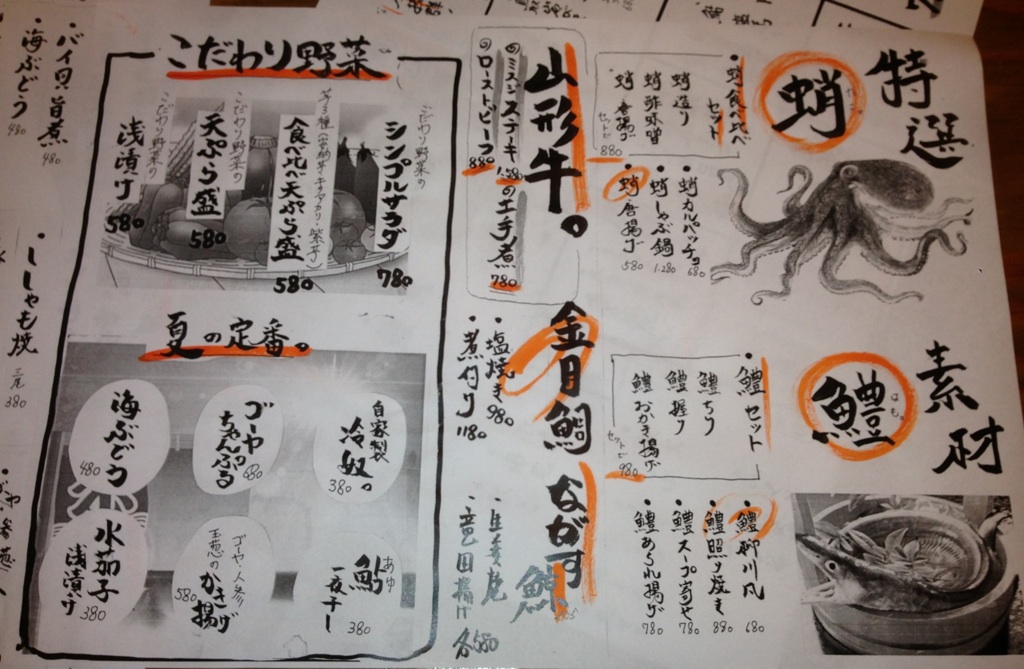 特選
素材
蛸
・蛸食べ比べ
セット
蛸造り
蛸酢味噌
蛸唐揚げ
セットで
880
・蛸カルパッチョ 680
・蛸しゃぶ鍋 1.280
・蛸唐揚げ 580
鱧
はも
・鱧セット
鱧ちり
鱧握り
鱧おかき揚げ
セットで
980
・鱧柳川風 680
・鱧照り焼き 880
・鱧スープ寄せ 780
・鱧あられ揚げ 780
山形牛。
のミスジステーキ 1.280
のローストビーフ 880
のエチ煮 780
金目鯛
・塩焼き 980
・煮付け 1180
ながす鯨
・竜田揚げ 各680
こだわり野菜
こだわり野菜の
シンプルサラダ
780
食べ比べ天ぷら盛
580
こだわり野菜の
天ぷら盛
580
こだわり野菜の
浅漬け
580
夏の定番。
自家製
冷奴。
380
ゴーヤ
ちゃんぷる
680
海ぶどう
480
あゆ
鮎
一夜干し
380
ゴーヤ・人参
玉葱の
かき揚げ
580
水茄子
浅漬け
380
・バイ貝旨煮 480
・海ぶどう 480
・ししゃも焼
三尾 380